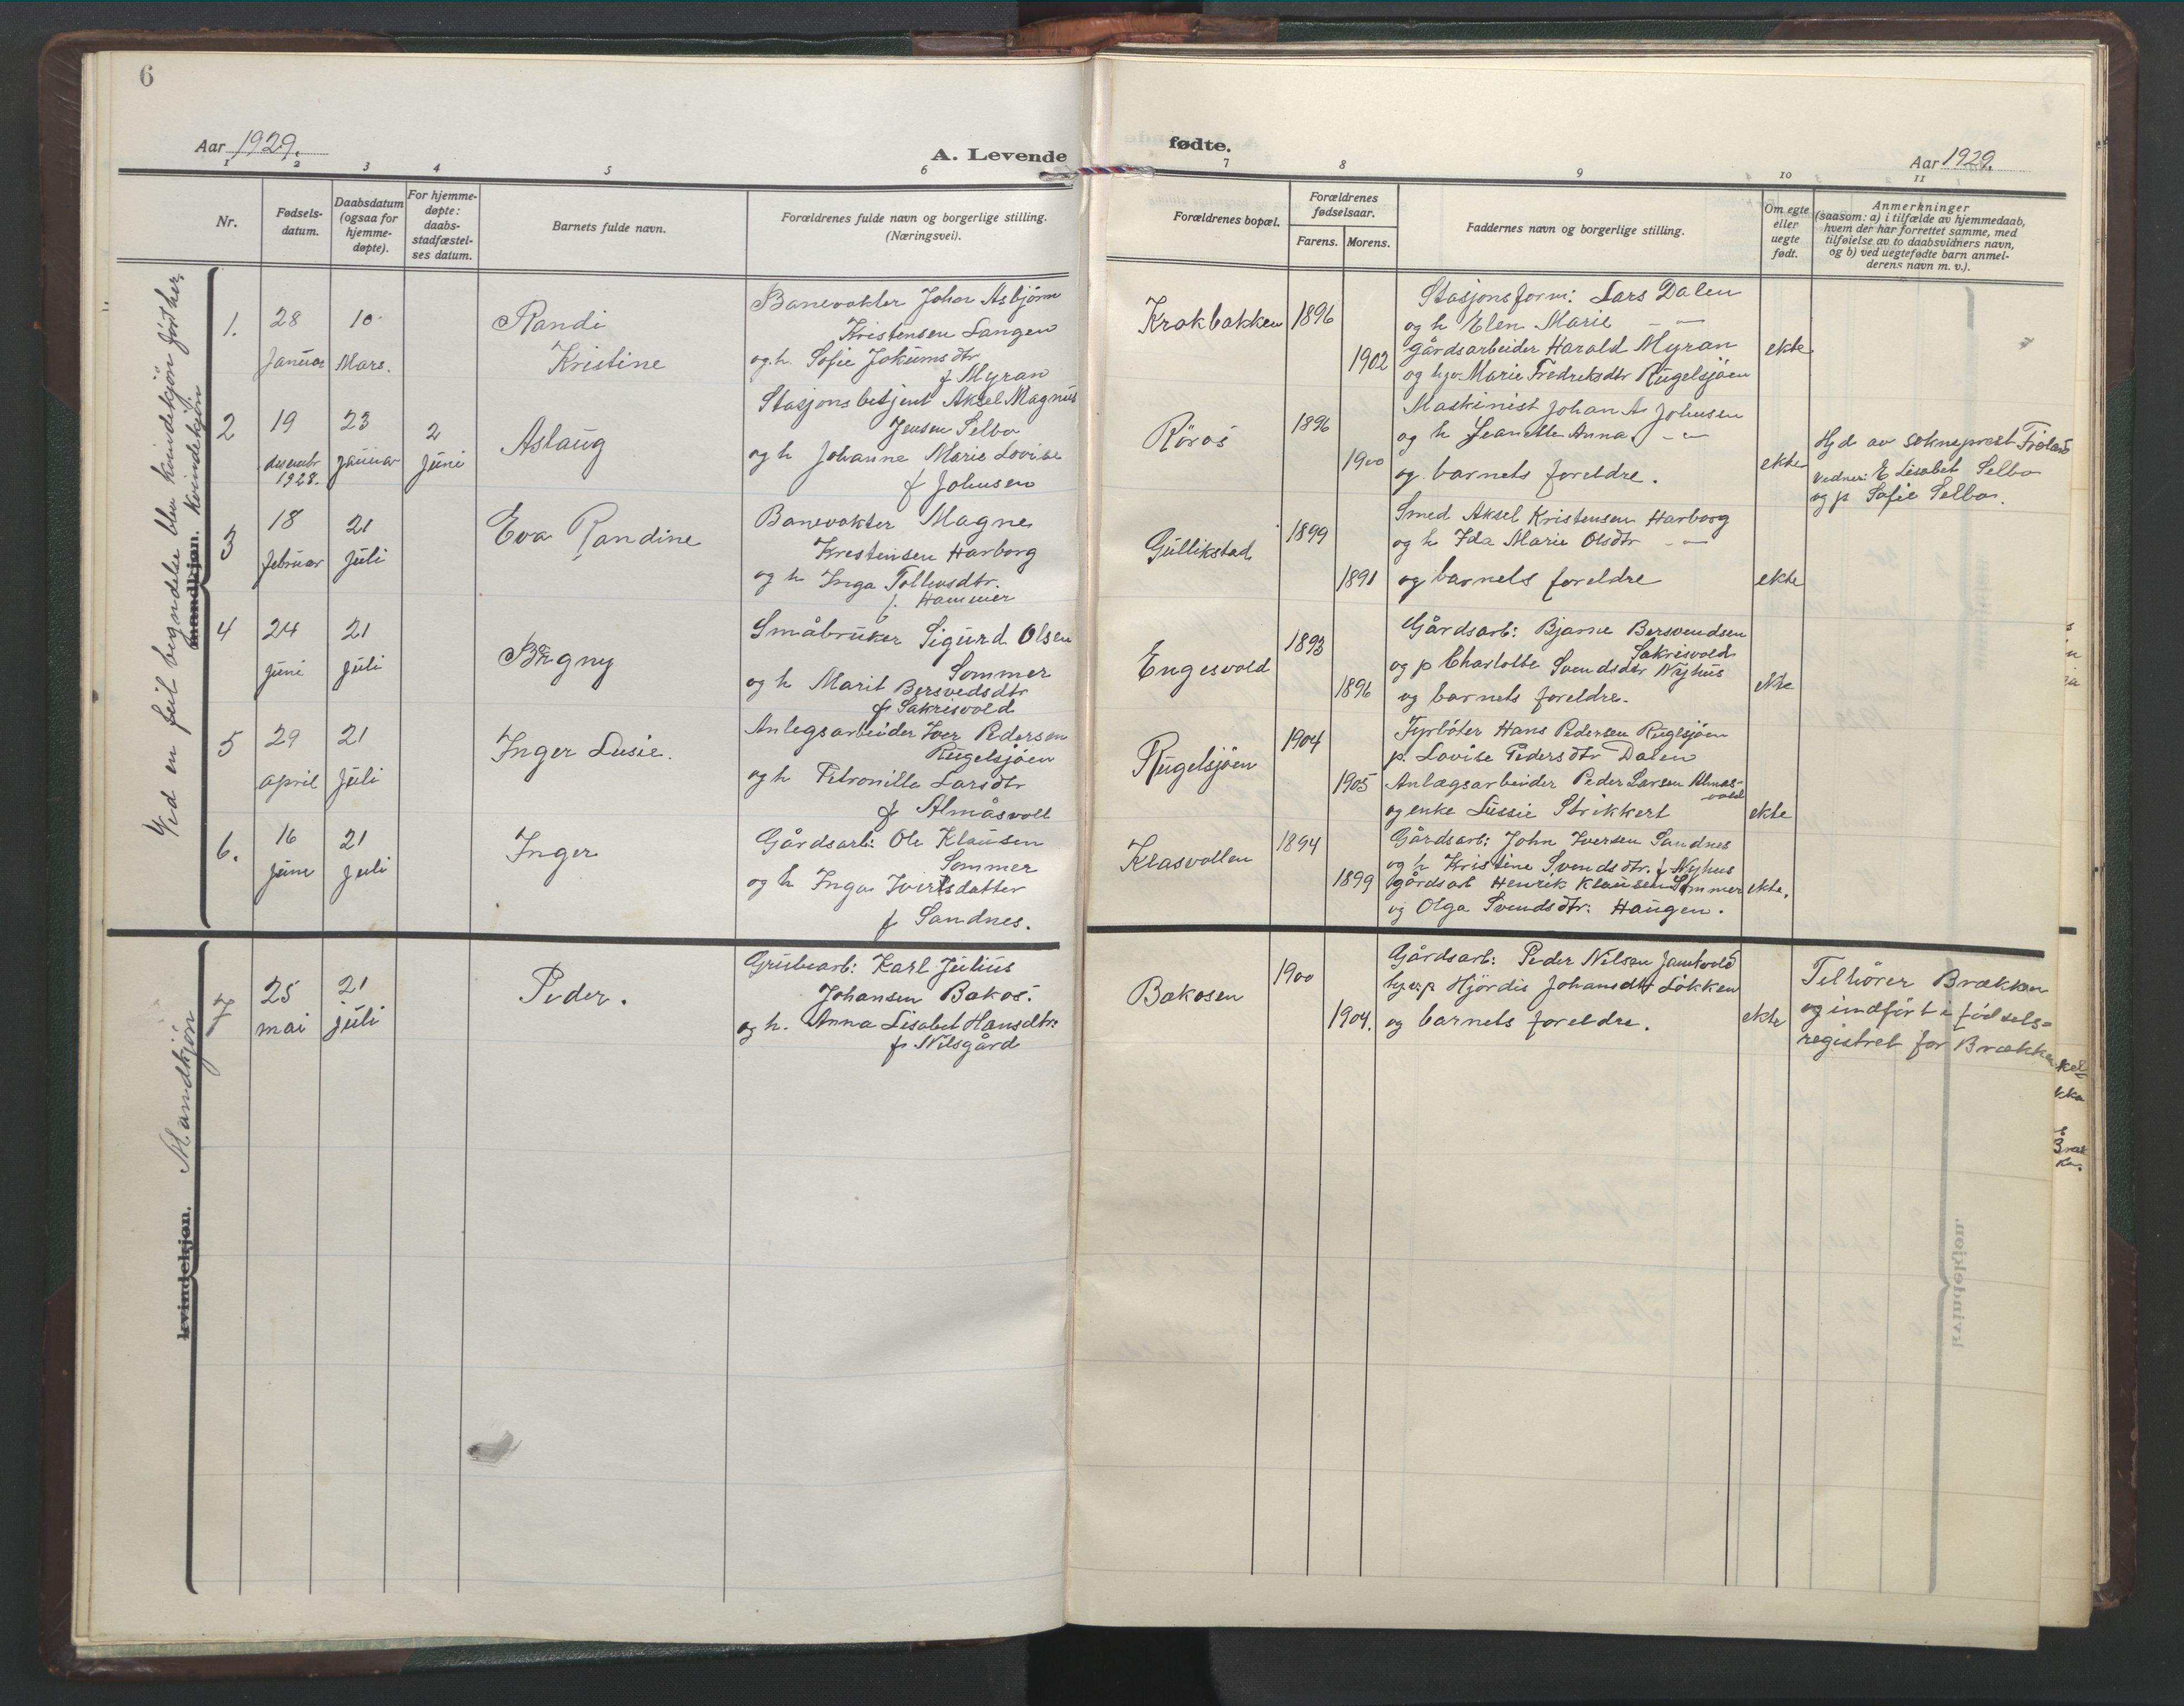 6
Aar 1929.
A. Levende
1 2 3 4 5 6
Nr.
Fødsels-
datum.
Daabsdatum
(ogsaa for
hjemme-
døpte).
For hjemme-
døpte:
daabs-
stadfæstel-
ses datum.
Barnets fulde navn.
Forældrenes fulde navn og borgerlige stilling.
(Næringsvei).
Ved en feil begyndelse blev kvindekjön först her.
mandkjøn. Kvindekjön
1.
28
Januar
10
Mars.
Randi
Kristine
Banevokter Johan Asbjörn
Kristensen Langen
og h. Sofie Jokumsdtr
f Myran
2
19
desembr
1928.
23
januar
2
juni
Aslaug
Stasjonsbetjent Aksel Magnus
Jensen Selbo
og h Johanne Marie Lovise
f Johnsen
3
18
februar
21
juli
Eva Randine
Banevokter Magne
Kristensen Harborg
og h Inga Tollevsdtr.
f. Hammer
4
24
juni
21
juli
Bergny
Småbruker Sigurd Olsen
Sommer
og h Marit Bersvedsdtr
f Sakrisvold
5
29
april
21
juli
Inger Lusie.
Anlegsarbeider Iver Pedersen
Rugelsjöen
og h Petronille Larsdtr
f Almåsvoll
6.
16
juni
21
juli
Inger
Gårdsarb: Ole Klausen
Sommer
og h Inga Iversdatter
f Sandnes.
kvindekjøn. Mandkjön
7
25
mai
21
juli
Peder.
Grubearb: Karl Julius
Johansen Bakos.
og h. Anna Lisabet Hansdtr:
f. Nilsgård
fødte.
Aar 1929.
7 8 9 10 11
Forældrenes bopæl.
Forældrenes
fødselsaar.
Farens. Morens.
Faddernes navn og borgerlige stilling.
Om egte
eller
uegte
født.
Anmerkninger
(saasom: a) i tilfælde av hjemmedaab,
hvem der har forrettet samme, med
tilføielse av to daabsvidners navn,
og b) ved uegtefødte barn anmel-
derens navn m. v.).
Krokbakken
1896
1902
Stasjonsform: Lars Dalen
og h Elen Marie — —
gårdsarbeider Harald Myran
og Marie Fredriksdtr Rugelsjöen
ekte
Röros
1896
1900
Maskinist Johan A. Johnsen
og h Jeanette Anna — —
og barnets foreldre.
ekte
Hj d av sokneprest
Vidner: E Lisabet Selbo
og p Sofie Selbo.
Gullikstad
1899
1891
Smed Aksel Kristensen Harborg
og h Ida Marie Olsdtr — —
og barnets foreldre
ekte
Engesvold
1893
1896
Gårdsarb: Bjarne Bersvendsen
Sakrisvold
og p Charlotte Svendsdtr Nyhus
og barnets foreldre.
ekte
Rugelsjöen
1904
1905
Fyrböter Hans Pedersen Rugelsjöen
p. Lovise Pedersdtr Dalen
Anlægsarbeider Peder Larsen Almås-
vold
og enke Lussie Strikkert
ekte
Klasvollen
1894
1899
Gårdsarb: John Iversen Sandnes
og h Kristine Svendsdtr. f Nyhus
gårdsarb Henrik Klausen Sommer
og Olga Svendsdtr: Haugen.
ekte.
Bakosen
1900
1904.
Gårdsarb: Peder Nilsen Jamtvold
Hjördis Johansdtr Lökken
og barnets foreldre.
ekte
Tilhörer Brækken
og indfört i fødsels=
registret for Brækken